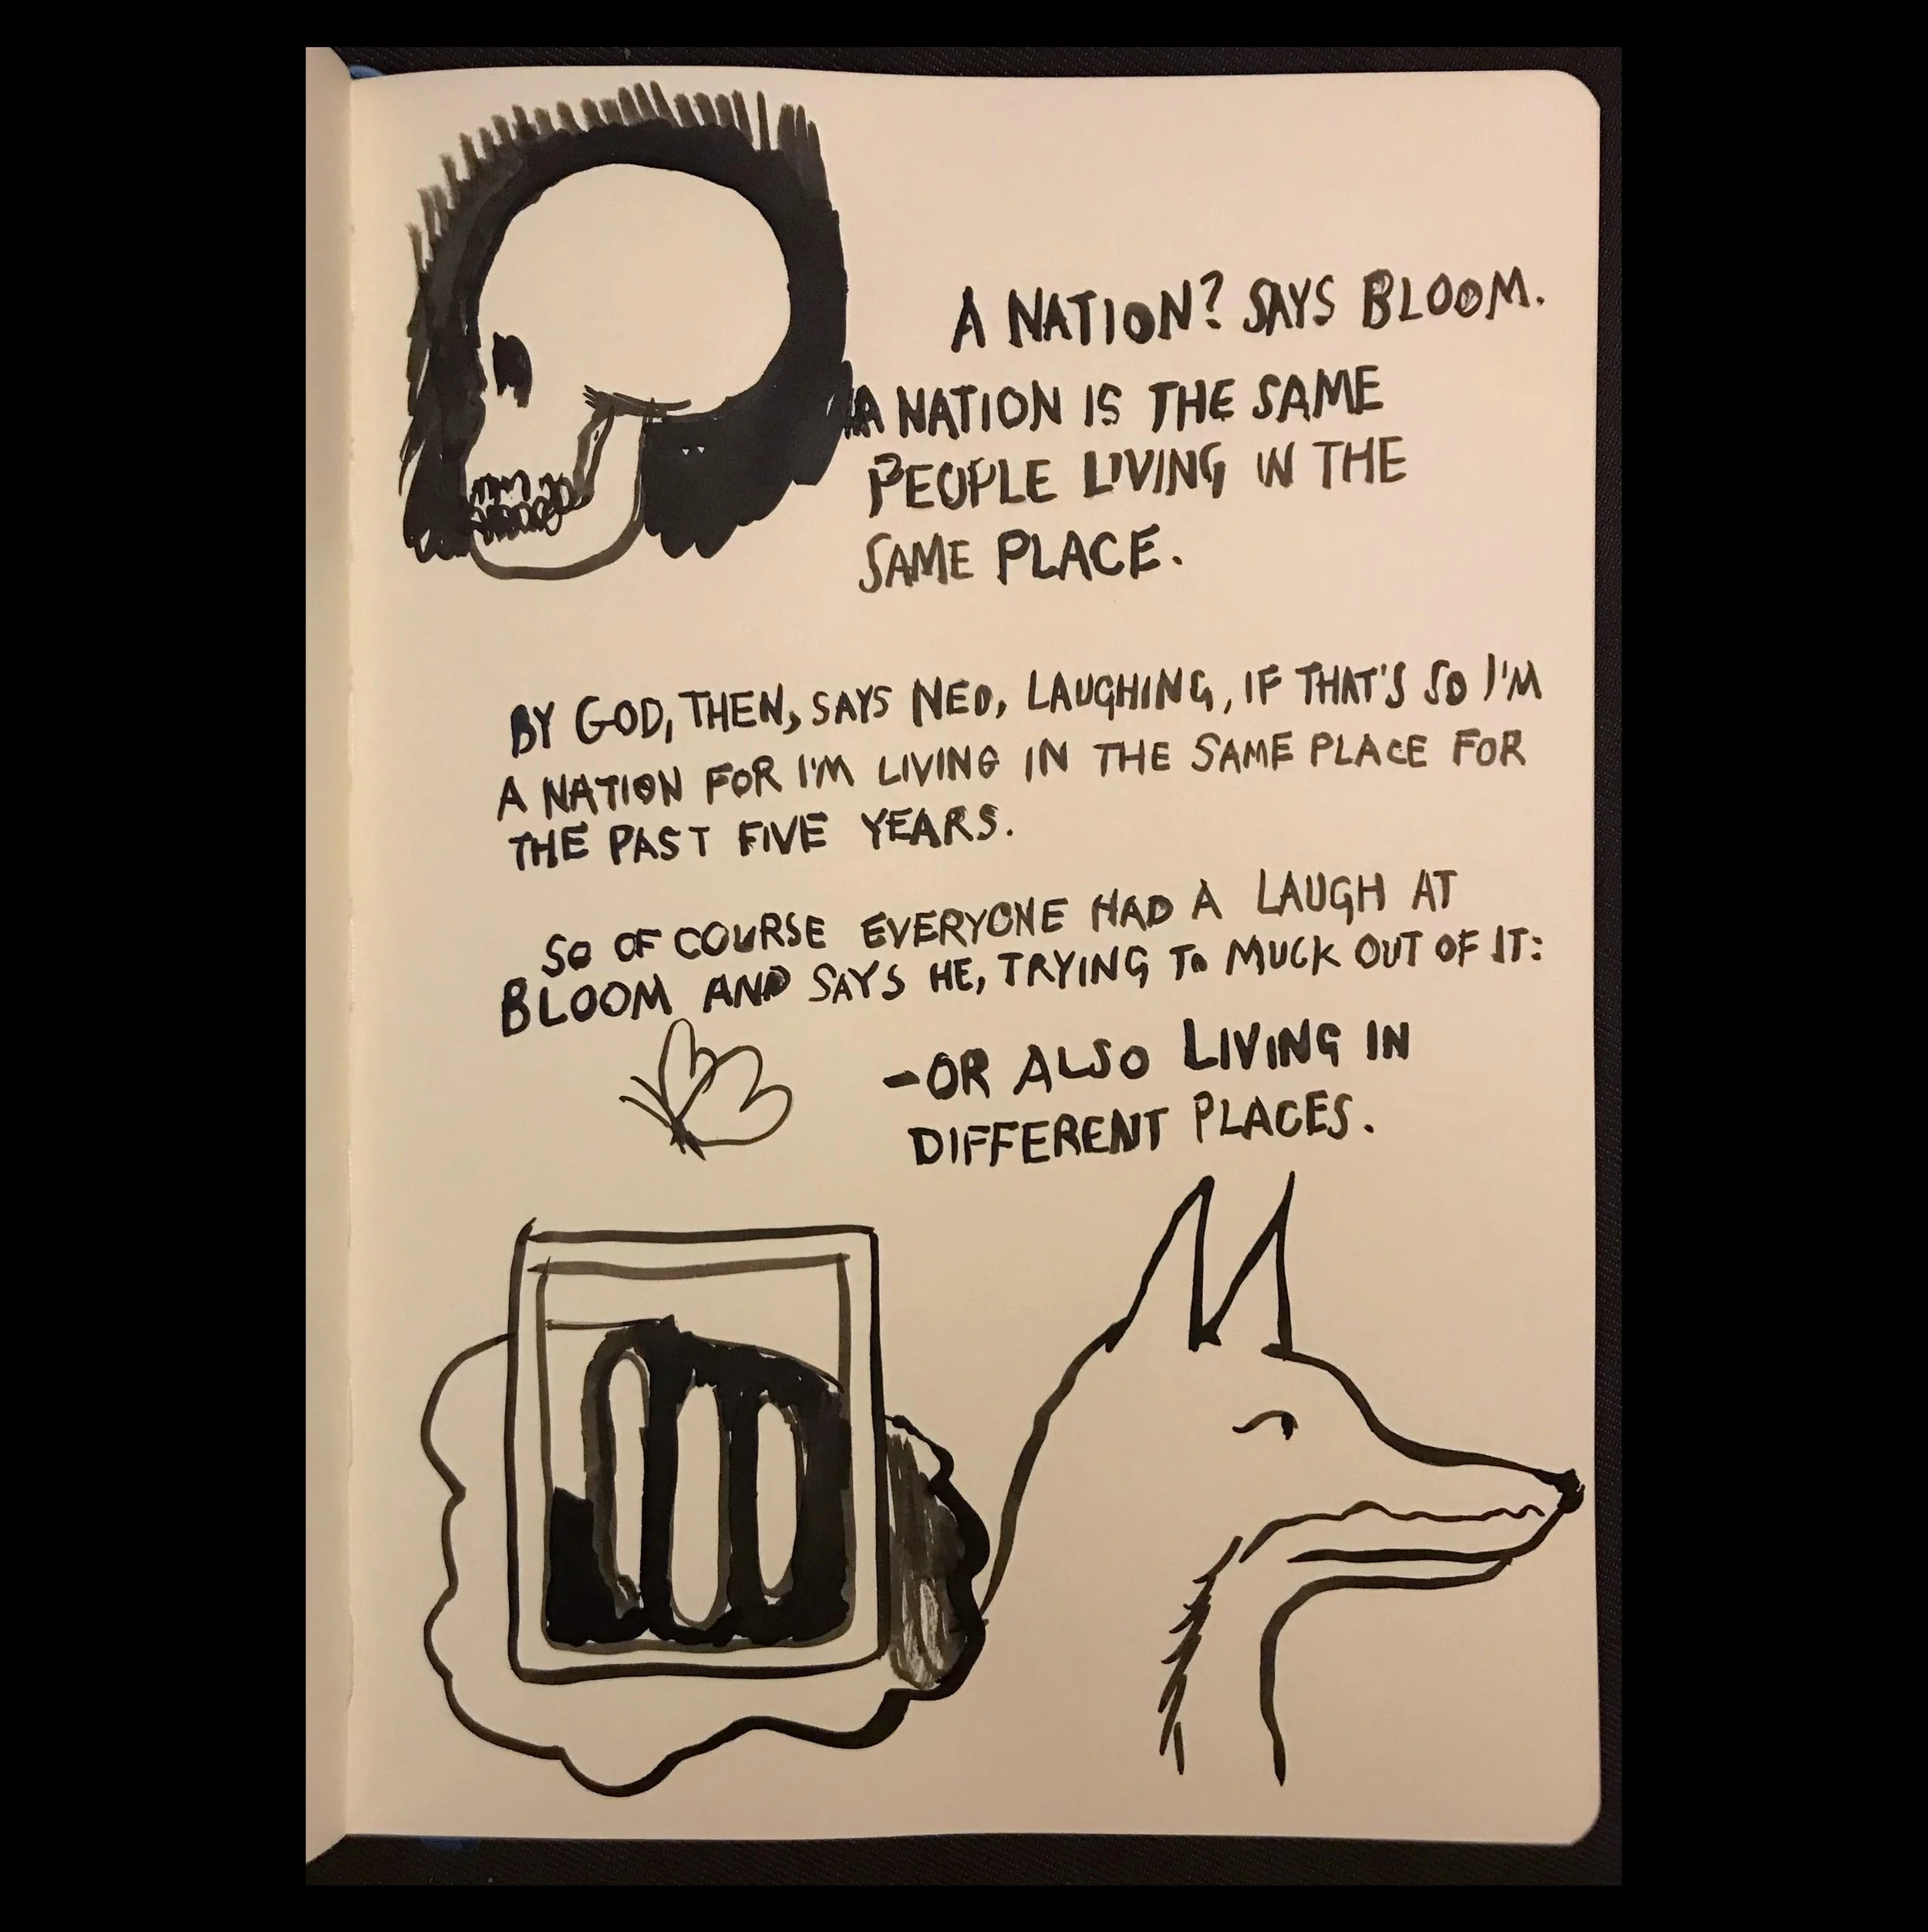 A NATION? SAYS BLOOM.
A NATION IS THE SAME
PEOPLE LIVING IN THE
SAME PLACE.
BY GOD, THEN, SAYS NED, LAUGHING, IF THAT'S SO I'M
A NATION FOR I'M LIVING IN THE SAME PLACE FOR
THE PAST FIVE YEARS.
SO OF COURSE EVERYONE HAD A LAUGH AT
BLOOM AND SAYS HE, TRYING TO MUCK OUT OF IT:
-OR ALSO LIVING IN
DIFFERENT PLACES.